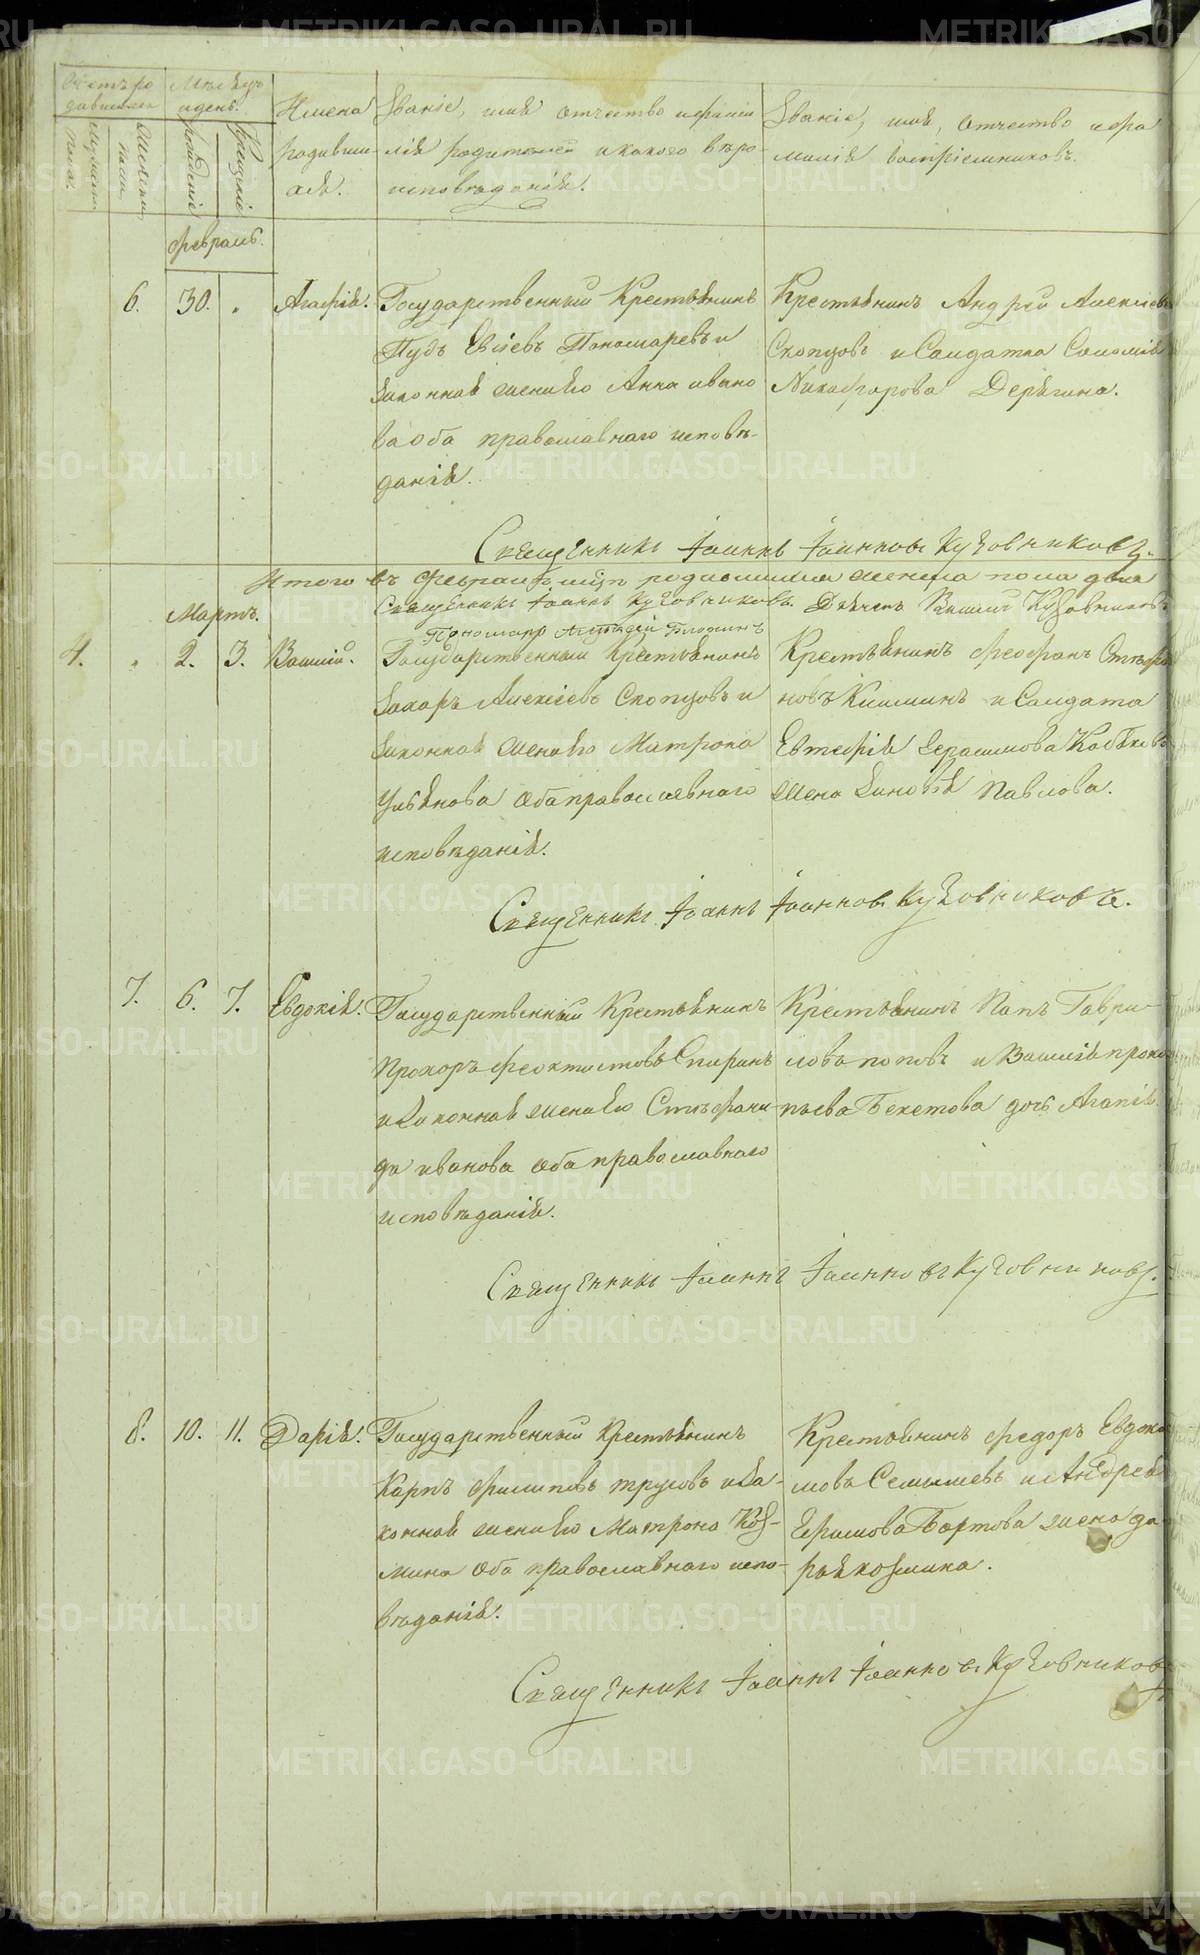 Счетъ ро
дившихся
Мѣсяцъ
и день.
Мужеска
пола.
Женска
пола.
рожденіе
Крещеніе
Имена
родивши
хся.
Званіе, имя отчество и фами
лія родителей и какого вѣро-
исповѣданія.
Званіе, имя, отчество и фа
милія воспріемниковъ.
Февраль.
6. 30. „ Агафія.
Государственный Крестьянинъ
Пудъ Евсіевъ Пономаревъ и
законная жена его Анна ивано
ва оба православнаго исповѣ-
данія.
Крестьянинъ Андрей Алексіевъ
Скопцовъ и Салдатка Саломія
Никафорова Дерягина.
Священникъ Іоаннъ Іоанновъ Кузовниковъ.
Итого въ Февралѣ мцѣ родившихся женска пола два
Священникъ Іоаннъ Кузовниковъ. Дьяченъ Василій Кузовниковъ
Пономарь
Мартъ.
4. „ 2. 3. Василій.
Государственный Крестьянинъ
Захаръ Алексіевъ Скопцовъ и
законная жена его Матрона
Ульянова оба православнаго
исповѣданія.
Крестьянинъ Феофанъ Стефа
новъ Кишкинъ и Салдата
Евтефія Герасимова
жена Зиновья Павлова.
Священникъ Іоаннъ Іоанновъ Кузовниковъ.
7. 6. 7. Евдокія.
Государственный Крестьянинъ
Прохоръ Феоктистовъ Спиринъ
и законная жена его Стефани-
да иванова оба православнаго
исповѣданія.
Крестьянинъ Папъ Гаври-
ловъ поповъ и Василія проко
пьева Бекетова дочь Агапія.
Священникъ Іоаннъ Іоанновъ Кузовниковъ.
8. 10. 11. Дарія.
Государственный Крестьянинъ
Карпъ Филиповъ трусовъ и за-
конная жена его Матрона Коз-
мина оба православнаго испо-
вѣданія.
Крестьянинъ Федоръ Евдоки
мовъ Семышевъ и Андрея
Ефимова Бартова жена да
рья козмина.
Священникъ Іоаннъ Іоанновъ Кузовниковъ
METRIKI.GASO-URAL.RU